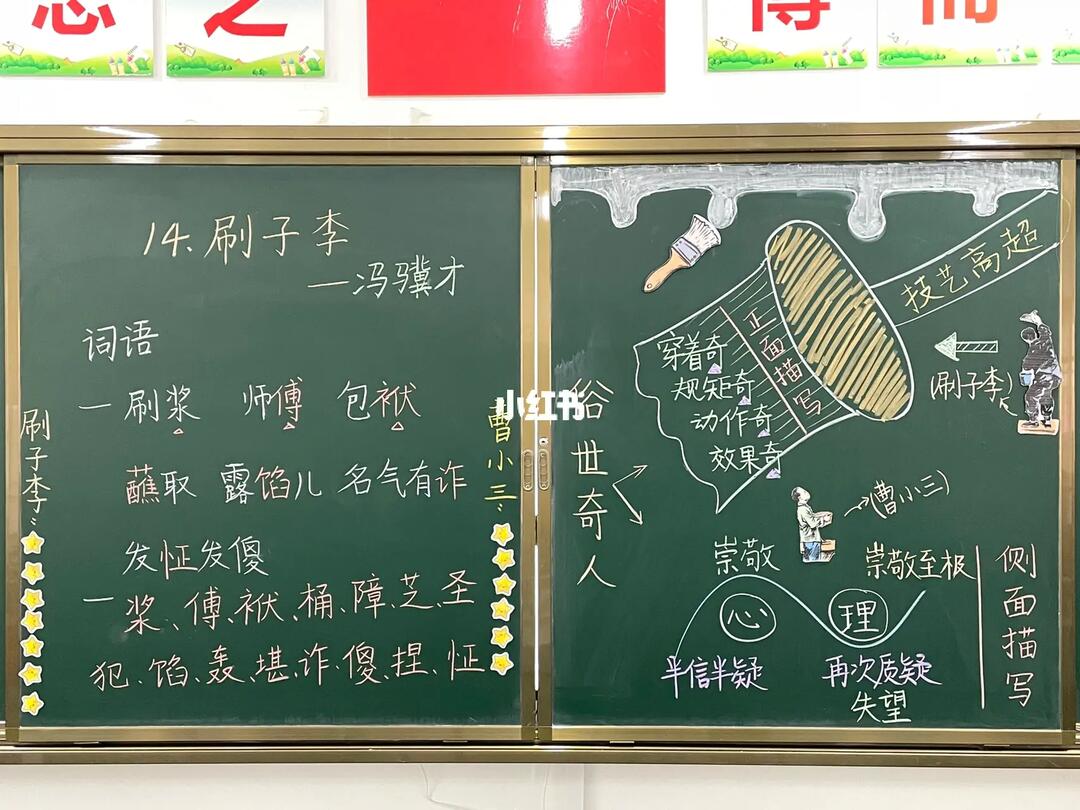 14.刷子李
—冯骥才
词语
一刷浆 师傅 包袱
蘸取 露馅儿 名气有诈
发怔发傻
一浆、傅、袱、桶、障、芝、圣
犯、馅、轰、堪、诈、傻、捏、怔
刷子李:
曹小三:
小红书
俗世奇人
技艺高超
正面描写
穿着奇
规矩奇
动作奇
效果奇
(刷子李)
(曹小三)
崇敬
崇敬至极
心理
半信半疑
再次质疑
失望
侧面描写